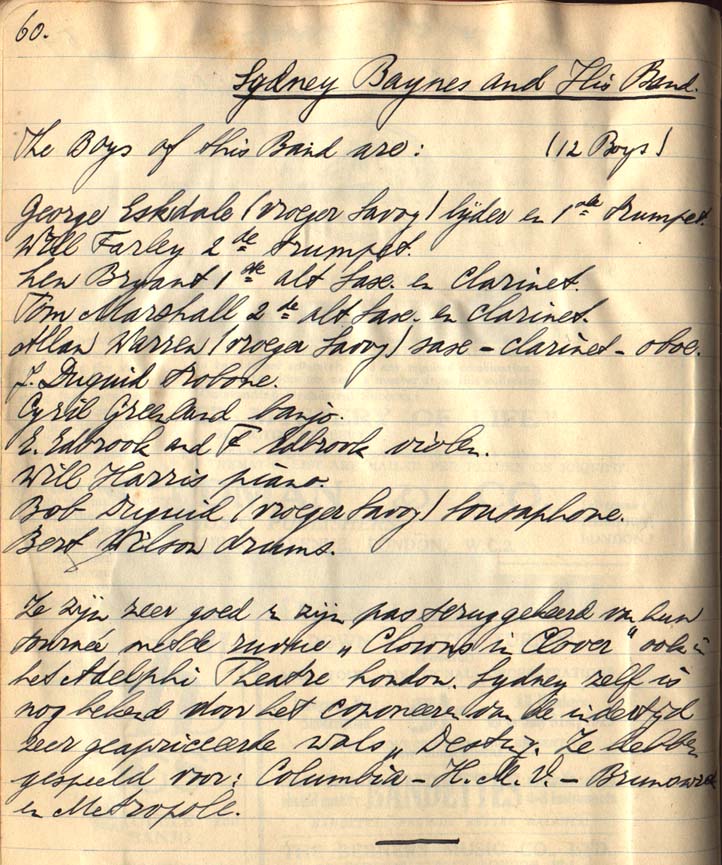 60.
Sydney Baynes and His Band.
The Boys of this Band are: (12 Boys)
George Eskdale (vroeger Savoy) lijder en 1ste trumpet.
Will Farley 2de trumpet.
Len Bryant 1ste alt Saxe. en Clarinet.
Tom Marshall 2de alt Saxe. en Clarinet.
Allan Warren (vroeger Savoy) saxe - clarinet - oboe.
J. Duguid trobone.
Cyril Greenland banjo.
E. Edbrook and F Edbrook violen.
Will Harris piano
Bob Duguid (vroeger Savoy) Sousaphone.
Bert Wilson drums.
Ze zijn zeer goed zijn pas teruggekeerd van hun
tourneé metde „Clowns in Clover" ook in
het Adelphi Theatre London. Sydney zelf is
nog bekend door het van de indertijd
zeer wals „Destiny. Ze hebben
gespeeld voor: Columbia - H.M.V. - Brunswick
en Metropole.